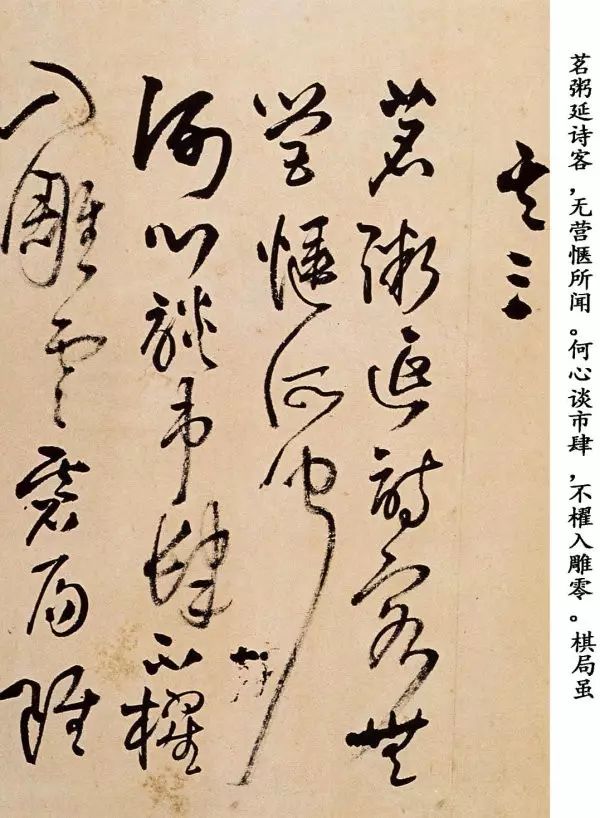 茗粥延诗客，无营惬所闻。何心谈市肆，不櫂入雕零。棋局虽
其三
茗粥延詩客無
營愜所聞
何心談市肆不櫂
入雕碁局雖